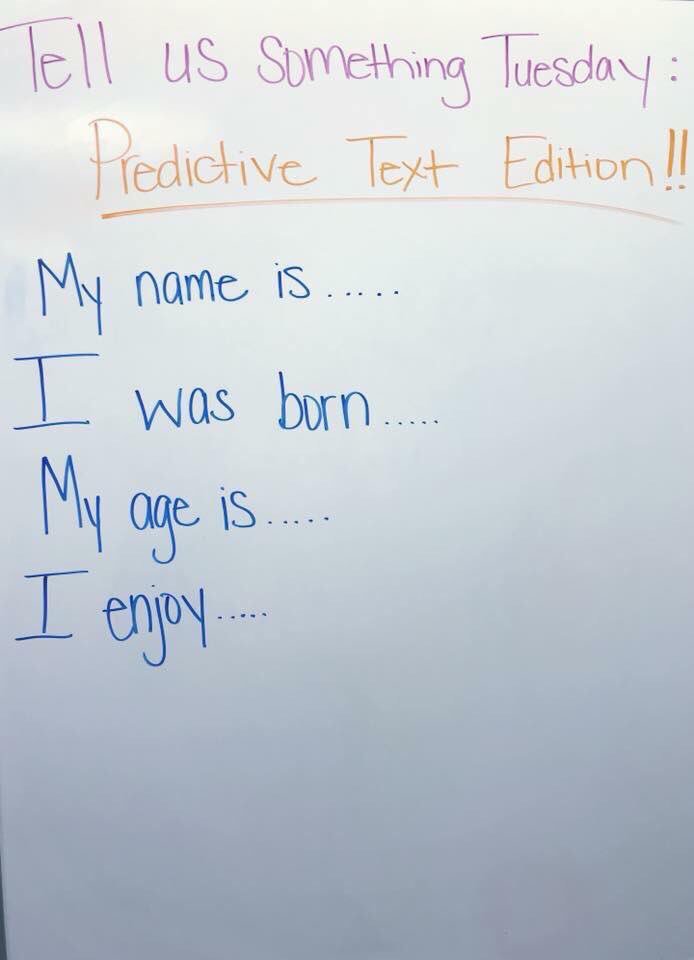 Tell us Something Tuesday:
Predictive Text Edition!!
My name is.....
I was born.....
My age is.....
I enjoy.....